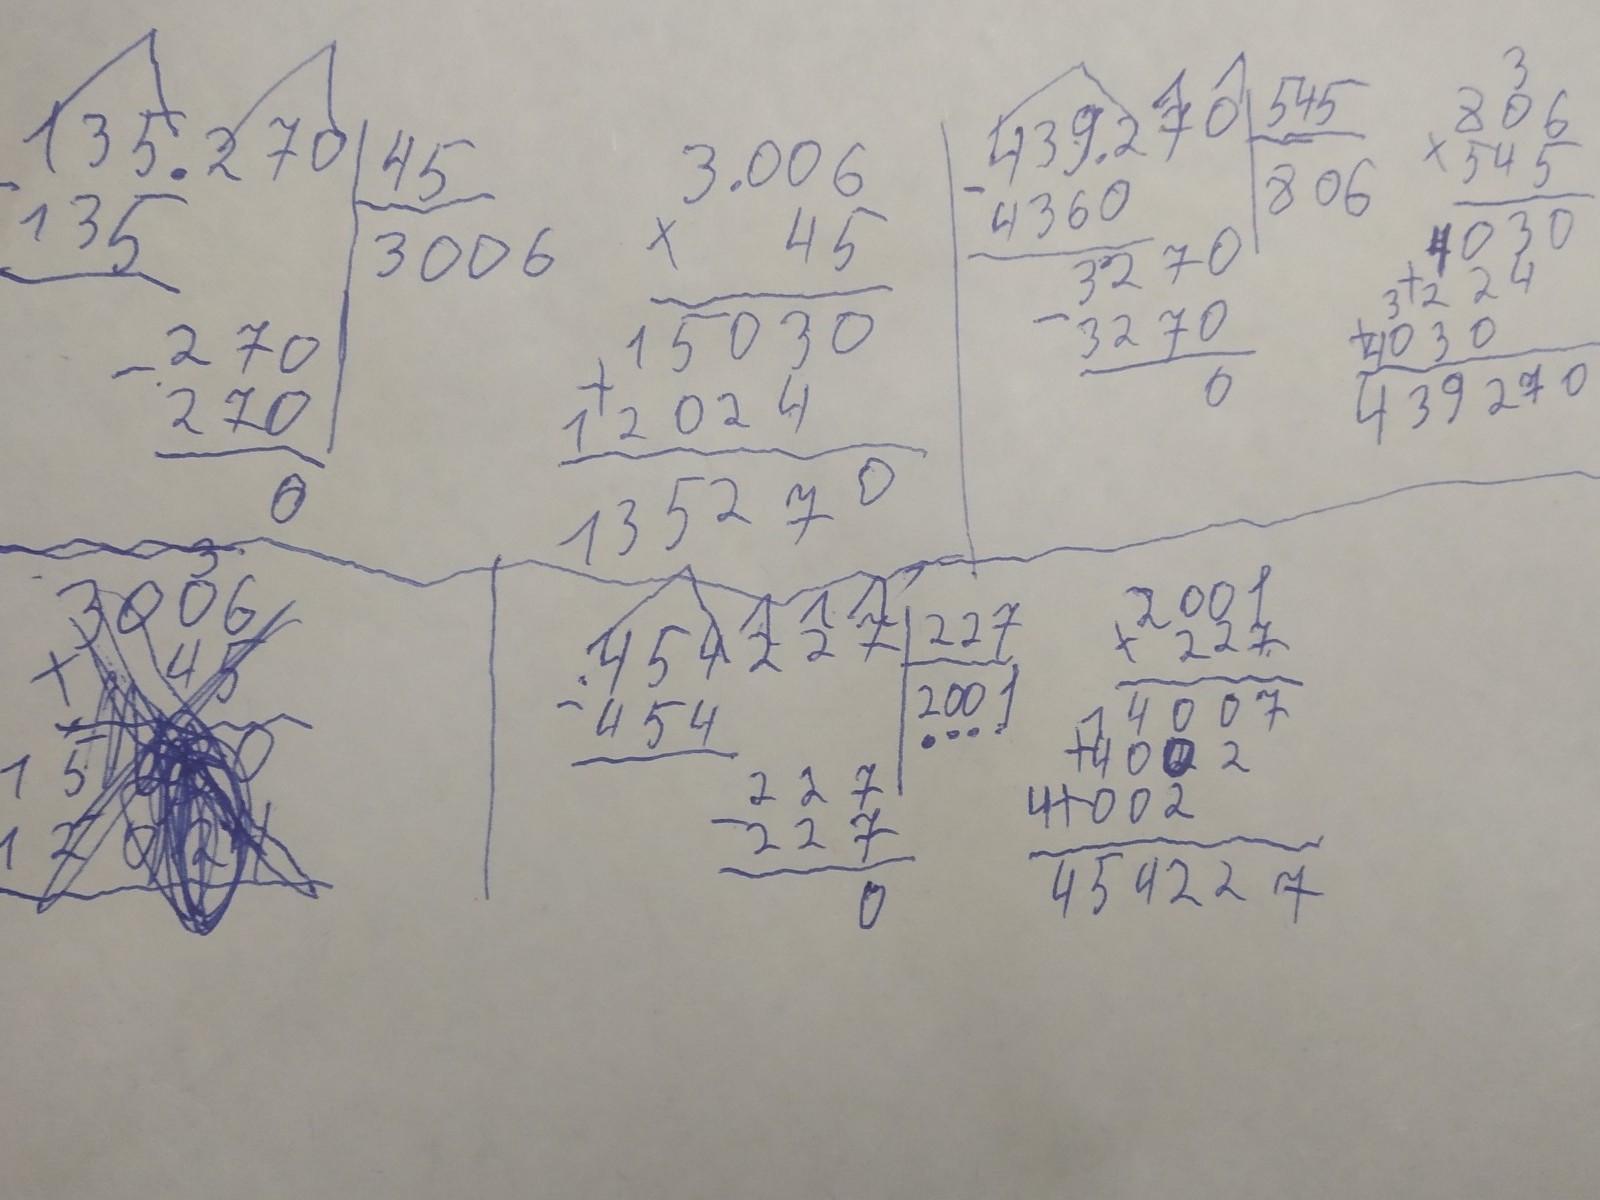 135.270 45
- 135 3006
- 270
270
0
3.006
x 45
15030
+
12024
135270
439.270 545
- 4360 806
3270
- 3270
0
3
806
x 545
4030
+
3224
+
4030
439270
3
3006
x 45
454227 227
- 454 2001
227
- 227
0
2001
x 227
14007
+4002
4+002
454227